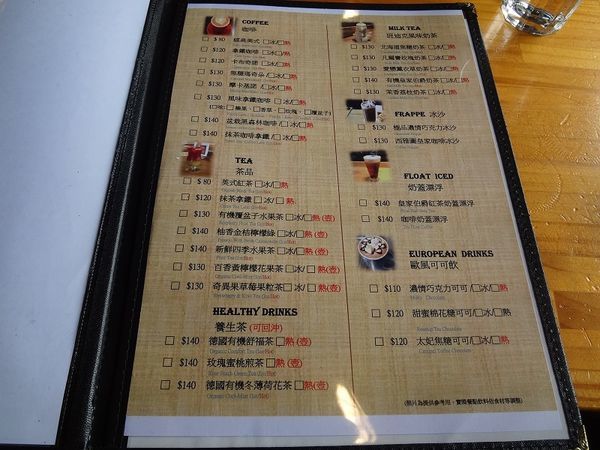 COFFEE
咖啡
$ 80 經典美式 □冰/□熱
$120 拿鐵咖啡 □冰/□熱
$120 卡布奇諾 □冰/□熱
$130 焦糖瑪奇朵 □冰/□熱
$130 摩卡基諾 □冰/□熱
$130 風味拿鐵咖啡 □冰/□熱
(口味:□榛果、□香草、□玫瑰、□覆盆子)
$140 盆栽黑森林咖啡 □冰/□熱
$140 抹茶咖啡拿鐵 □冰/□熱
TEA
茶品
$ 80 英式紅茶 □冰/□熱
$120 抹茶拿鐵 □冰/□熱
$130 有機覆盆子水果茶 □冰/□熱(壺)
$140 柚香金桔檸檬綠 □冰/□熱(壺)
$140 新鮮四季水果茶 □冰/□熱(壺)
$130 百香蜜檸檬花果茶 □冰/□熱(壺)
$130 奇異果草莓果粒茶 □冰/□熱(壺)
HEALTHY DRINKS
養生茶 (可回沖)
$140 德國有機舒福茶 □熱(壺)
$140 玫瑰蜜桃煎茶 □熱(壺)
$140 德國有機冬薄荷花茶 □熱(壺)
MILK TEA
班迪克風味奶茶
$130 北海道焦糖奶茶 □冰/□熱
$130 凡爾賽玫瑰奶茶 □冰/□熱
$130 愛戀薰衣草奶茶 □冰/□熱
$140 有機皇家伯爵奶茶 □冰/□熱
$130 茉香荔枝奶茶 □冰/□熱
FRAPPE 冰沙
$130 極品濃情巧克力冰沙
$130 西雅圖皇家咖啡冰沙
FLOAT ICED
奶蓋漂浮
$140 皇家伯爵紅茶奶蓋漂浮
$140 咖啡奶蓋漂浮
EUROPEAN DRINKS
歐風可可飲
$110 濃情巧克力可可 /□冰/□熱
$120 甜蜜棉花糖可可/□冰/□熱
$120 太妃焦糖可可/□冰/□熱
(照片為提供參考用,實際餐點飲料依食材等調整)